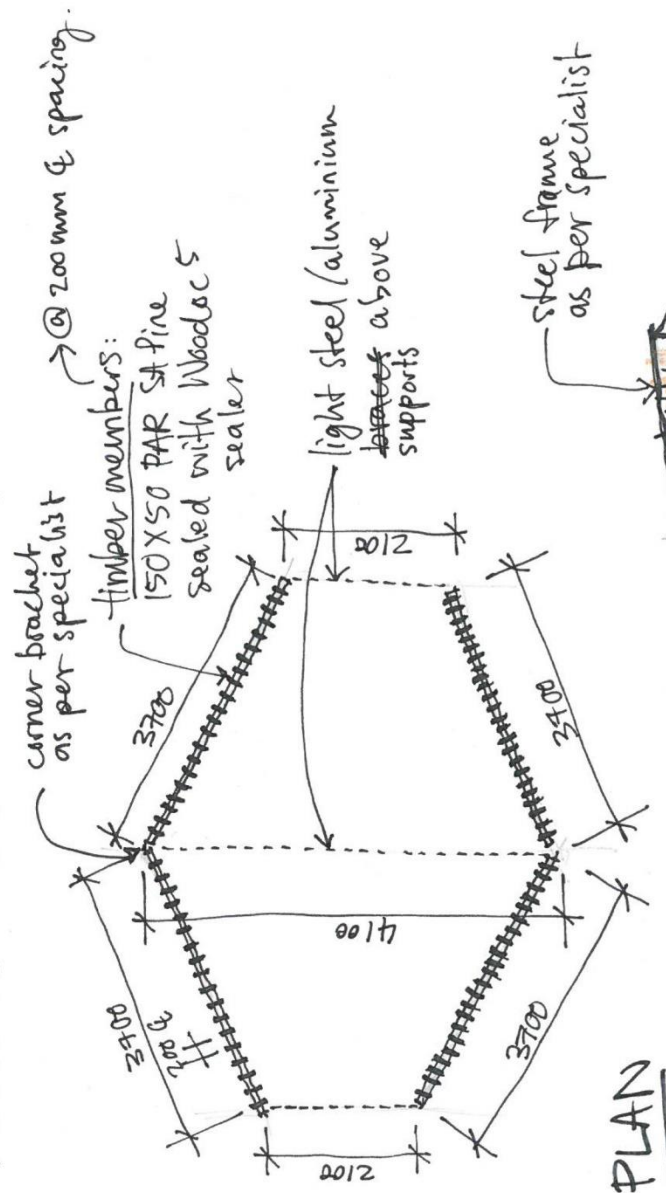 corner bracket
as per specialist
timber members:
@ 200mm ℄ spacing.
150X50 PAR SA Pine
sealed with Woodoc 5
sealer
light steel/aluminium
braces above
supports
steel frame
as per specialist
3700
200 ℄
3700
2100
4100
3700
3700
PLAN